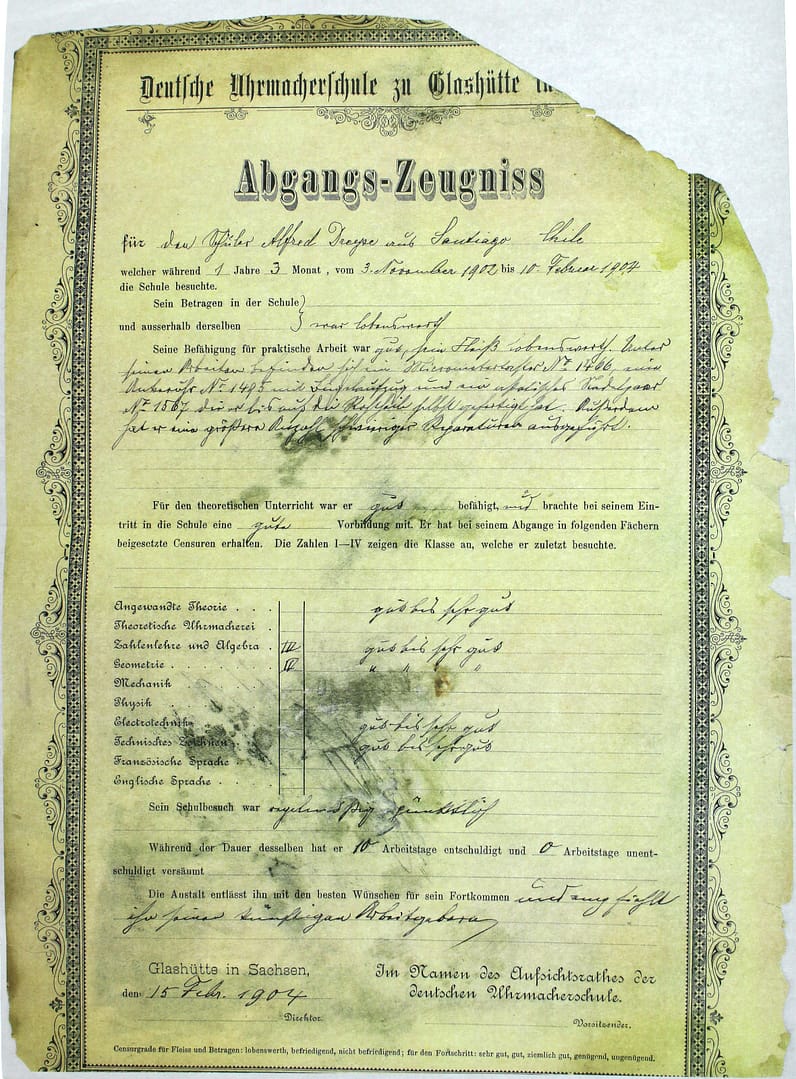 Deutsche Uhrmacherschule zu Glashütte
Abgangs-Zeugniss
für den Schüler Alfred Dreyse aus Santiago Chile
welcher während 1 Jahre 3 Monat, vom 3. November 1902 bis 10. Februar 1904
die Schule besuchte.
Sein Betragen in der Schule }
und ausserhalb derselben } war lobenswerth
Seine Befähigung für praktische Arbeit war gut, sein Fleiß lobenswerth. Unter
seinen Arbeiten befinden sich ein Micrometertaster No 1466, eine
Ankeruhr No 1495 mit und ein
No 1567 die er bis auf die selbst gefertigt hat. Außerdem
hat er eine größere Anzahl schwieriger Reparaturen ausgeführt.
Für den theoretischen Unterricht war er gut befähigt, und brachte bei seinem Ein-
tritt in die Schule eine gute Vorbildung mit. Er hat bei seinem Abgange in folgenden Fächern
beigesetzte Censuren erhalten. Die Zahlen I—IV zeigen die Klasse an, welche er zuletzt besuchte.
Angewandte Theorie . . . gut bis sehr gut
Theoretische Uhrmacherei .
Zahlenlehre und Algebra . IV gut bis sehr gut
Geometrie . . . . . . . IV " " " "
Mechanik . . . . . . .
Physik . . . . . . . .
Electrotechnik gut bis sehr gut
Technisches Zeichnen gut bis sehr gut
Französische Sprache . .
Englische Sprache . . . .
Sein Schulbesuch war regelmäßig pünktlich
Während der Dauer desselben hat er 10 Arbeitstage entschuldigt und 0 Arbeitstage unent-
schuldigt versäumt
Die Anstalt entlässt ihn mit den besten Wünschen für sein Fortkommen und empfiehlt
ihn seinen künftigen Arbeitgebern
Glashütte in Sachsen,
den 15 Febr. 1904
Direktor.
Im Namen des Aufsichtsrathes der
deutschen Uhrmacherschule.
Vorsitzender.
Censurgrade für Fleiss und Betragen: lobenswerth, befriedigend, nicht befriedigend; für den Fortschritt: sehr gut, gut, ziemlich gut, genügend, ungenügend.